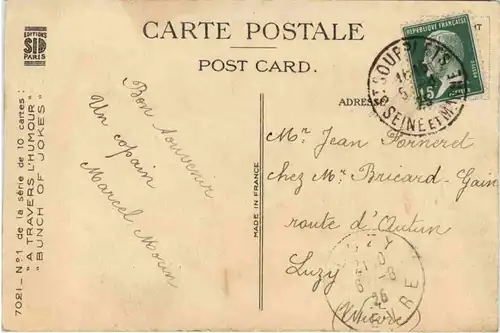 CARTE POSTALE
POST CARD.
ADRESSE
EDITIONS
SID
PARIS
7021 - No 1 de la série de 10 cartes:
"A TRAVERS L'HUMOUR"
"BUNCH OF JOKES"
MADE IN FRANCE
Bon souvenir
Un copain
Marcel Morin
RÉPUBLIQUE FRANÇAISE
15
POSTES
ST SOUPPLETS
16
5
SEINE ET MARNE
Mr Jean Forneret
chez Mr Bricard-Gain
route d'Autun
Luzy
(Nièvre)
LUZY
6 - 8
26